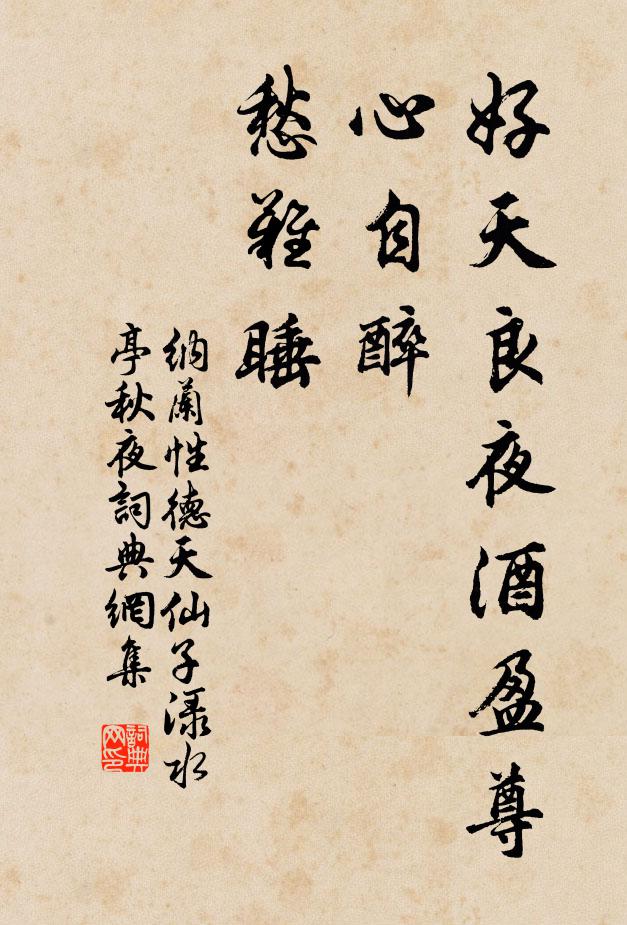 好天良夜酒盈尊
心自醉
愁難睡
納蘭性德天仙子渌水
亭秋夜詞典網集
詞典
网印